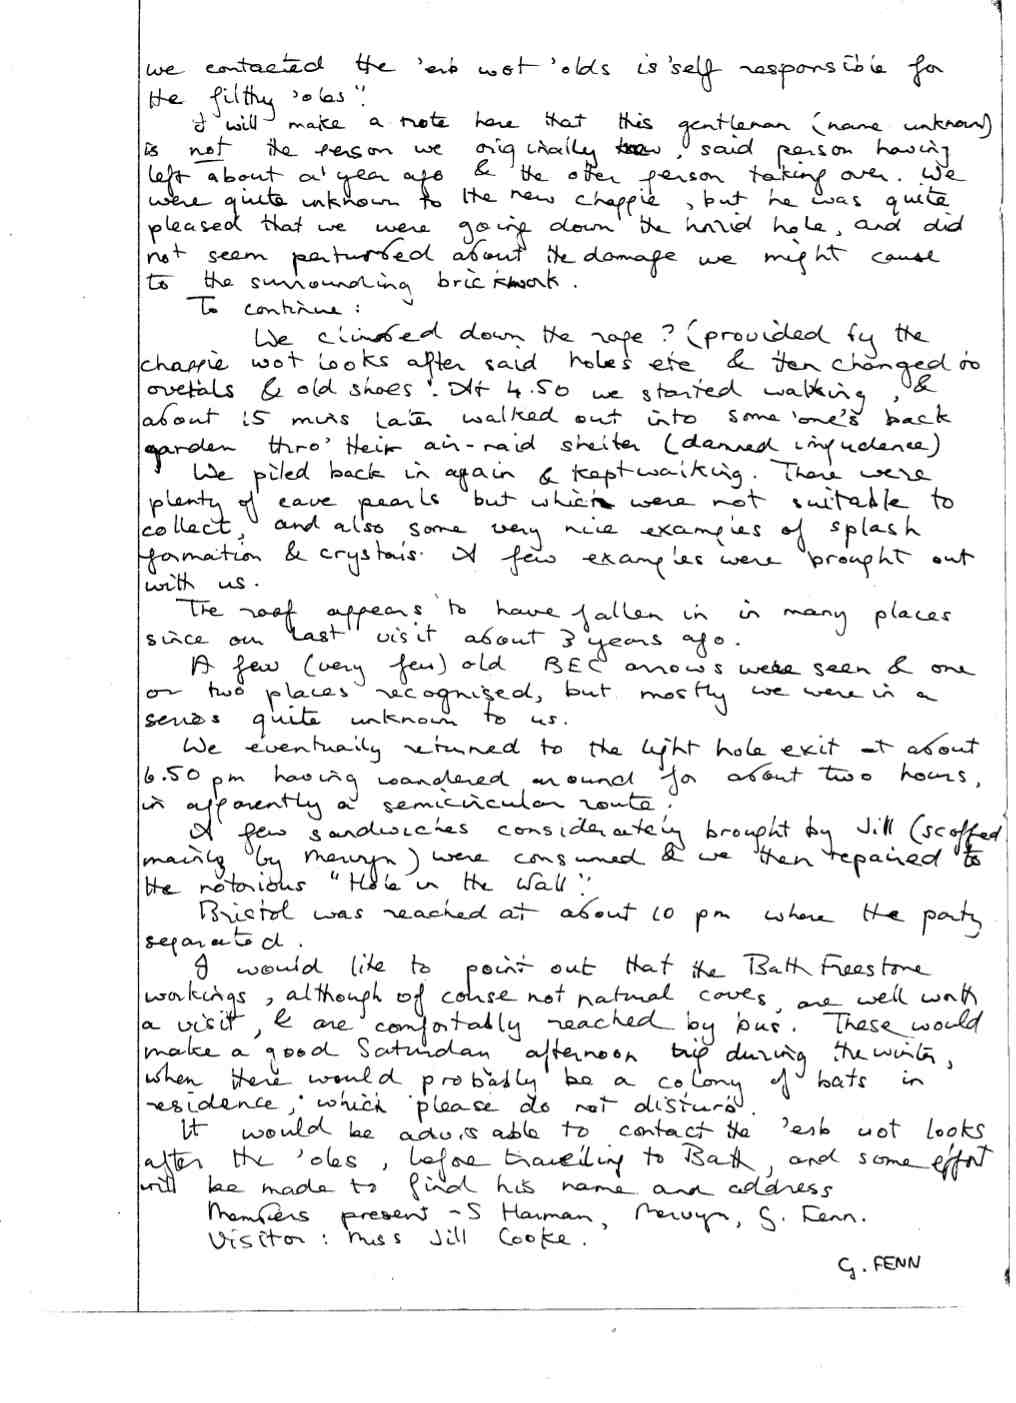 we contacted the 'erb wot 'olds is'self responsible for
the filthy 'oles".
I will make a note here that this gentleman (name unknown)
is not the person we originally knew, said person having
left about a year ago & the other person taking over. We
were quite unknown to the new chappie, but he was quite
pleased that we were going down the horrid hole, and did
not seem perturbed about the damage we might cause
to the surrounding brickwork.
To continue:
We climbed down the rope? (provided by the
chappie wot looks after said holes etc & then changed to
overals & old shoes. At 4.50 we started walking, &
about 15 mins later walked out into some 'one's back
garden thro' their air-raid shelter (damned impudence)
We piled back in again & kept walking. There were
plenty of cave pearls but which were not suitable to
collect, and also some very nice examples of splash
formation & crystals. A few examples were brought out
with us.
The roof appears to have fallen in in many places
since our last visit about 3 years ago.
A few (very few) old BEC arrows were seen & one
or two places recognised, but mostly we were in a
series quite unknown to us.
We eventually returned to the light hole exit at about
6.50 pm having wandered around for about two hours,
in apparently a semicircular route.
A few sandwiches considerately brought by Jill (scoffed
mainly by Mervyn) were consumed & we then repaired to
the notorious "Hole in the Wall".
Bristol was reached at about 10 pm where the party
separated.
I would like to point out that the Bath Freestone
workings, although of course not natural caves, are well worth
a visit, & are comfortably reached by bus. These would
make a good Saturday afternoon trip during the winter,
when there would probably be a colony of bats in
residence, which please do not disturb.
It would be advisable to contact the 'erb wot looks
after the 'oles, before travelling to Bath, and some effort
will be made to find his name and address
Members present - S Harman, Mervyn, G. Fenn.
Visitor: Miss Jill Cooke.
G. FENN